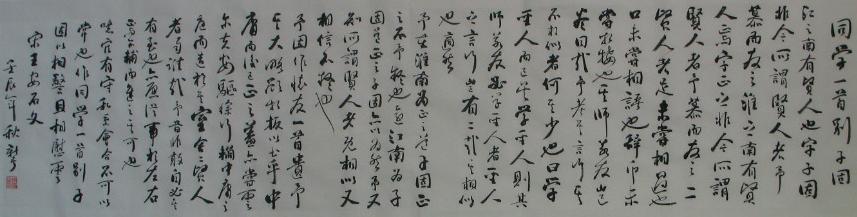 同學一首別子固
江之南有賢人也字子固
非今所謂賢人者予
慕而友之淮之南有賢
人焉字正之非今所謂
賢人者予慕而友之二
賢人者足未嘗相過也
口未嘗相語也辭幣未
嘗相接也其師若友豈
盡同哉予考其言行其
不相似者何其少也曰學
聖人而已矣學聖人則其
師若友必學聖人者聖人
之言行豈有二哉其相似
也適然
予在淮南為正之道子固正
之不予疑也還江南為子
固道正之子固亦以為然予又
知所謂賢人者既相似又
相信不疑也
子固作懷友一首遺予
其大略欲相扳以至乎中
庸而後已正之蓋亦嘗云
尔夫安驅徐行轥中庸之
庭而造於其室舍二賢人
者而誰哉予昔非敢自必其
有至也亦願從事於左右
焉尔輔而進之其可也
噫官有守私有系會合不可以
常也作同學一首別子
固以相警且相慰云
宋王安石文
壬辰年秋